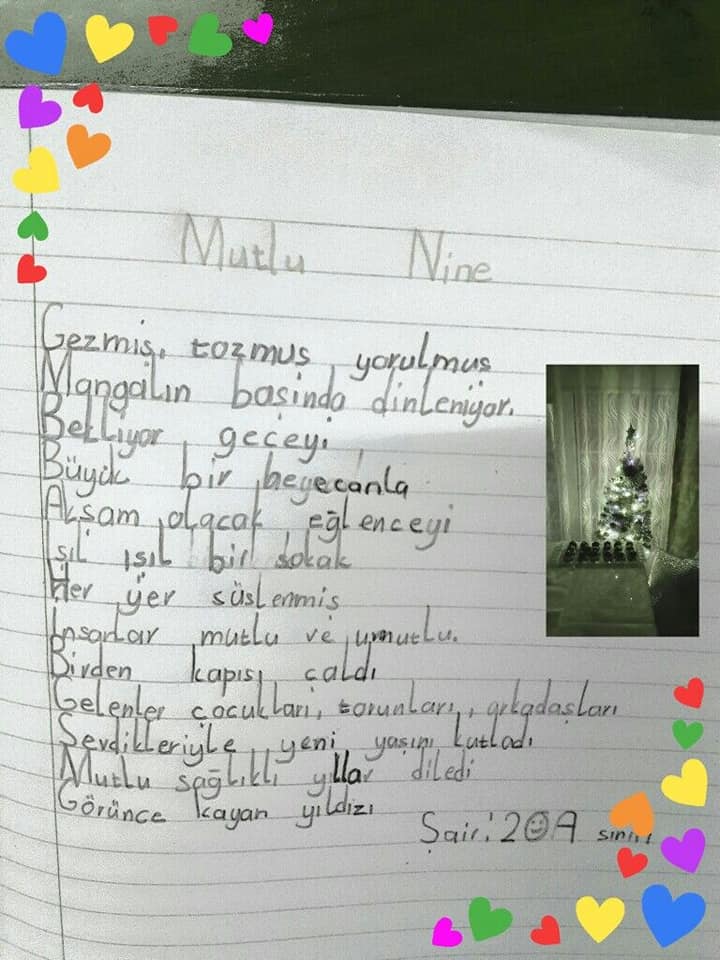 Mutlu Nine
Gezmiş, tozmuş yorulmuş
Mangalın başında dinleniyor.
Bekliyor geceyi
Büyük bir heyecanla
Akşam olacak eğlenceyi
Işıl ışıl bir sokak
Her yer süslenmiş
İnsanlar mutlu ve umutlu.
Birden kapısı çaldı
Gelenler çocukları, torunları, arkadaşları
Sevdikleriyle yeni yaşını kutladı
Mutlu sağlıklı yıllar diledi
Görünce kayan yıldızı
Şair: 2☺A sınıfı